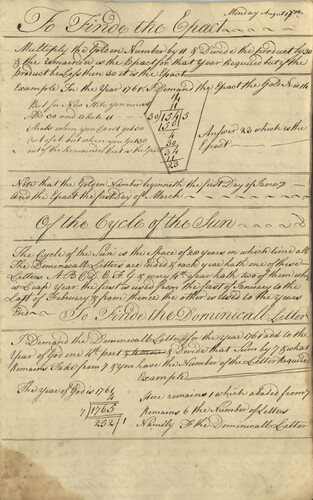 Monday August 17th
To Finde the Epact
Multiply the Golden Number by 11 & Divide the product by 30
& the remainder is the Epact for that Year Required but if the
product be less then 30 it is the Epact
Example For the Year 1761 I Demand the Epact the Gold N is 14
But for New Stile you must
Add 30 and
Makes when you cant get 30
out of it but when you get 30
out of the Remainder that is the Epact
14
11
30 | 154 | 5
150
4
30
34
11
23
Answer 23 which is the
Epact
Note that the Golden Number begineth the first Day of Janury
And the Epact the first day of March
Of the Cycle of the Sun
The Cycle of the Sun is the Space of 28 years in which time all
The Dominicall Letters are ended & each year hath one of these
Letters A B C D E F G & every 4th year hath two of them which
is Leap Year the first is used from the first of January to the
Last of February & from thence the other is used to the Years
End
To Finde the Dominicall Letter
I Demand the Dominicall Letter for the Year 1761 add to the
Year of God one 4th part & Divide that Sum by 7 & what
Remains Take from 7 & you have the Number of the Letter Require
Example
The Year of God is 1761
4
7 | 1765
252 / 1
Here remains 1 which abated from 7
Remains 6 the Number of Letters
Namely F the Dominicall Letter